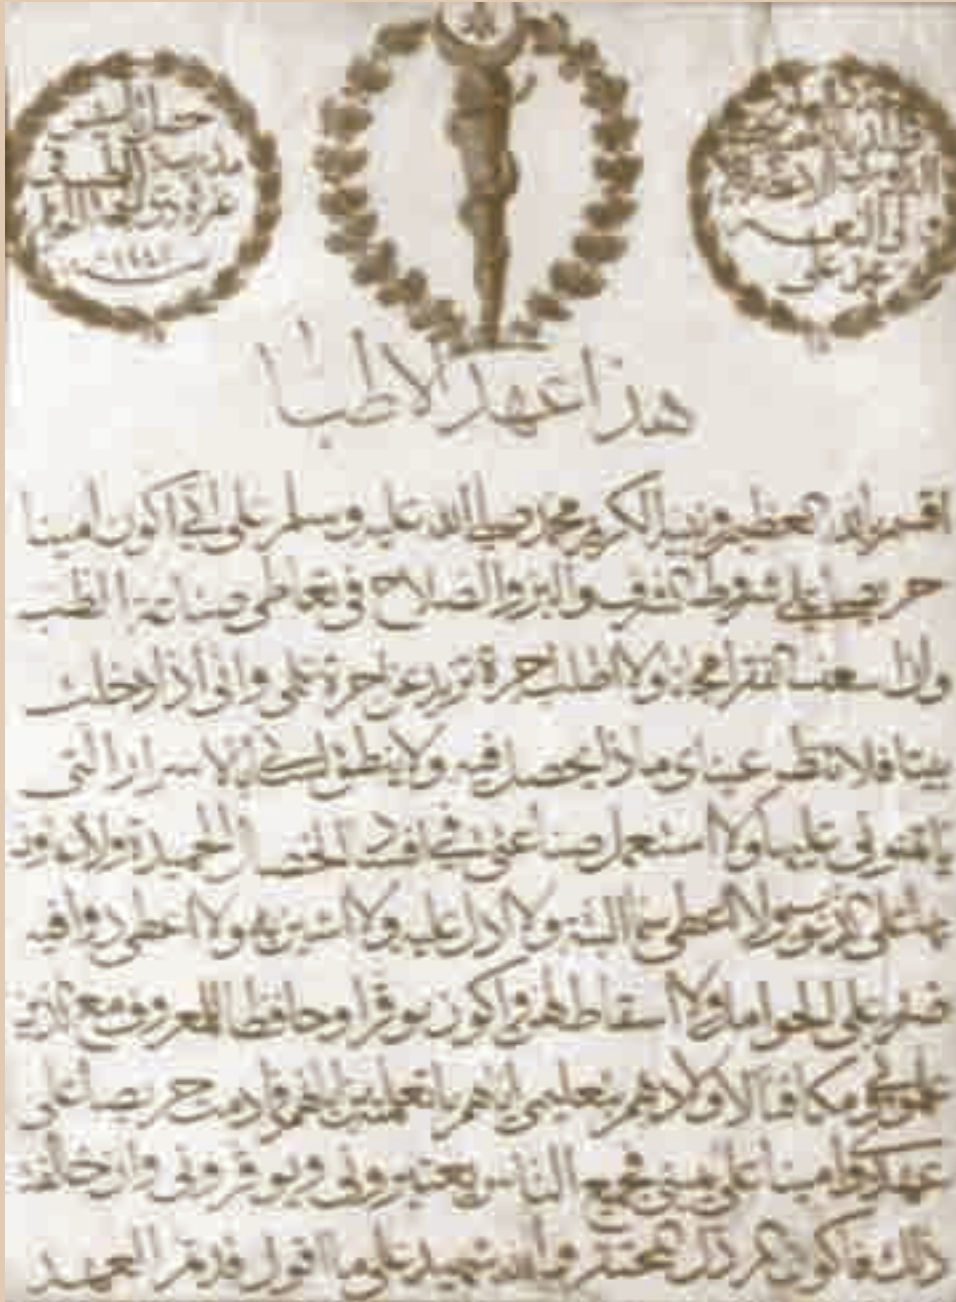 حصل
مدرسة الطب
غرة ذي القعدة
سنة ١٢٤٢
ولي النعم
محمد علي
هذا عهد الاطبا
اقسم بالله العظيم ونبيه الكريم محمد صلى الله عليه وسلم على اني اكون امينا
حريصا على شروط الشرف والبر والصلاح في تعاطي صناعة الطب
وان اسعف الفقرا مجانا ولا اطلب اجرة تزيد عن اجرة عملي واني اذا دخلت
بيتا فلا تنظر عيناي ماذا يحصل فيه ولا ينطق لساني بالاسرار التي
يأتمنوني عليها ولا استعمل صناعتي في افساد الخصال الحميدة ولا
بها على الذنوب ولا اعطي سما البتة ولا ادل عليه ولا اشير به ولا اعطي دوا فيه
ضرر على الحوامل ولا اسقاط لهن واكون موقرا وحافظا للمعروف مع الذين
علموني ومكافأ لاولادهم بتعليمي اياهم ما تعلمته من ابائهم فما دمت حريصا على
عهدي وامينا على يميني فجميع الناس يعتبروني ويوقروني وان خالفت
ذلك فاكون المحتقر والله شهيد على ما اقول قد تم العهد